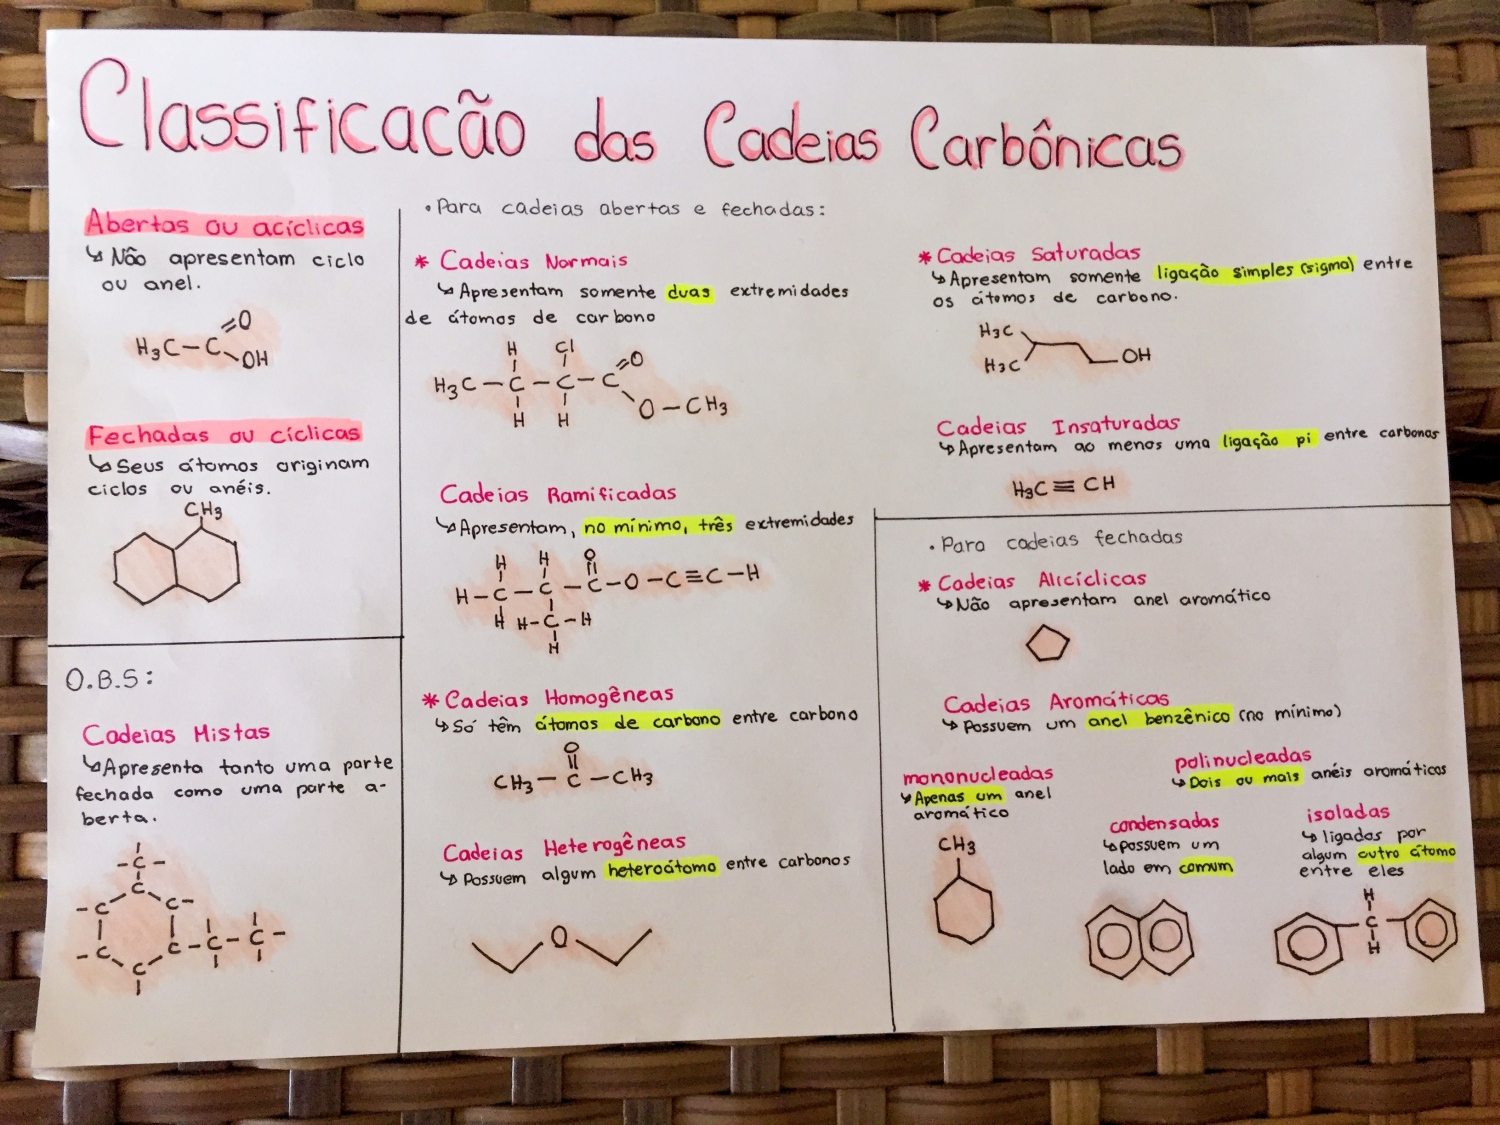 Classificacão das Cadeias Carbônicas
Abertas ou acíclicas
↳ Não apresentam ciclo
ou anel.
O
H₃C–C
OH
Fechadas ou cíclicas
↳ Seus átomos originam
ciclos ou anéis.
CH₃
O.B.S:
Cadeias Mistas
↳ Apresenta tanto uma parte
fechada como uma parte a-
berta.
-C-
C
-C C-
-C C-C-C-
C
• Para cadeias abertas e fechadas:
* Cadeias Normais
↳ Apresentam somente duas extremidades
de átomos de carbono
H Cl
O
H₃C–C–C–C
O–CH₃
H H
Cadeias Ramificadas
↳ Apresentam, no mínimo, três extremidades
H H O
H–C–C–C–O–C≡C–H
H H–C–H
H
* Cadeias Homogêneas
↳ Só têm átomos de carbono entre carbono
O
CH₃–C–CH₃
Cadeias Heterogêneas
↳ Possuem algum heteroátomo entre carbonos
O
* Cadeias Saturadas
↳ Apresentam somente ligação simples (sigma) entre
os átomos de carbono.
H₃C
OH
H₃C
Cadeias Insaturadas
↳ Apresentam ao menos uma ligação pi entre carbonos
H₃C≡CH
• Para cadeias fechadas
* Cadeias Alicíclicas
↳ Não apresentam anel aromático
Cadeias Aromáticas
↳ Possuem um anel benzênico (no mínimo)
mononucleadas
↳ Apenas um anel
aromático
CH₃
polinucleadas
↳ Dois ou mais anéis aromáticos
condensadas
↳ possuem um
lado em comum
isoladas
↳ ligados por
algum outro átomo
entre eles
H
C
H